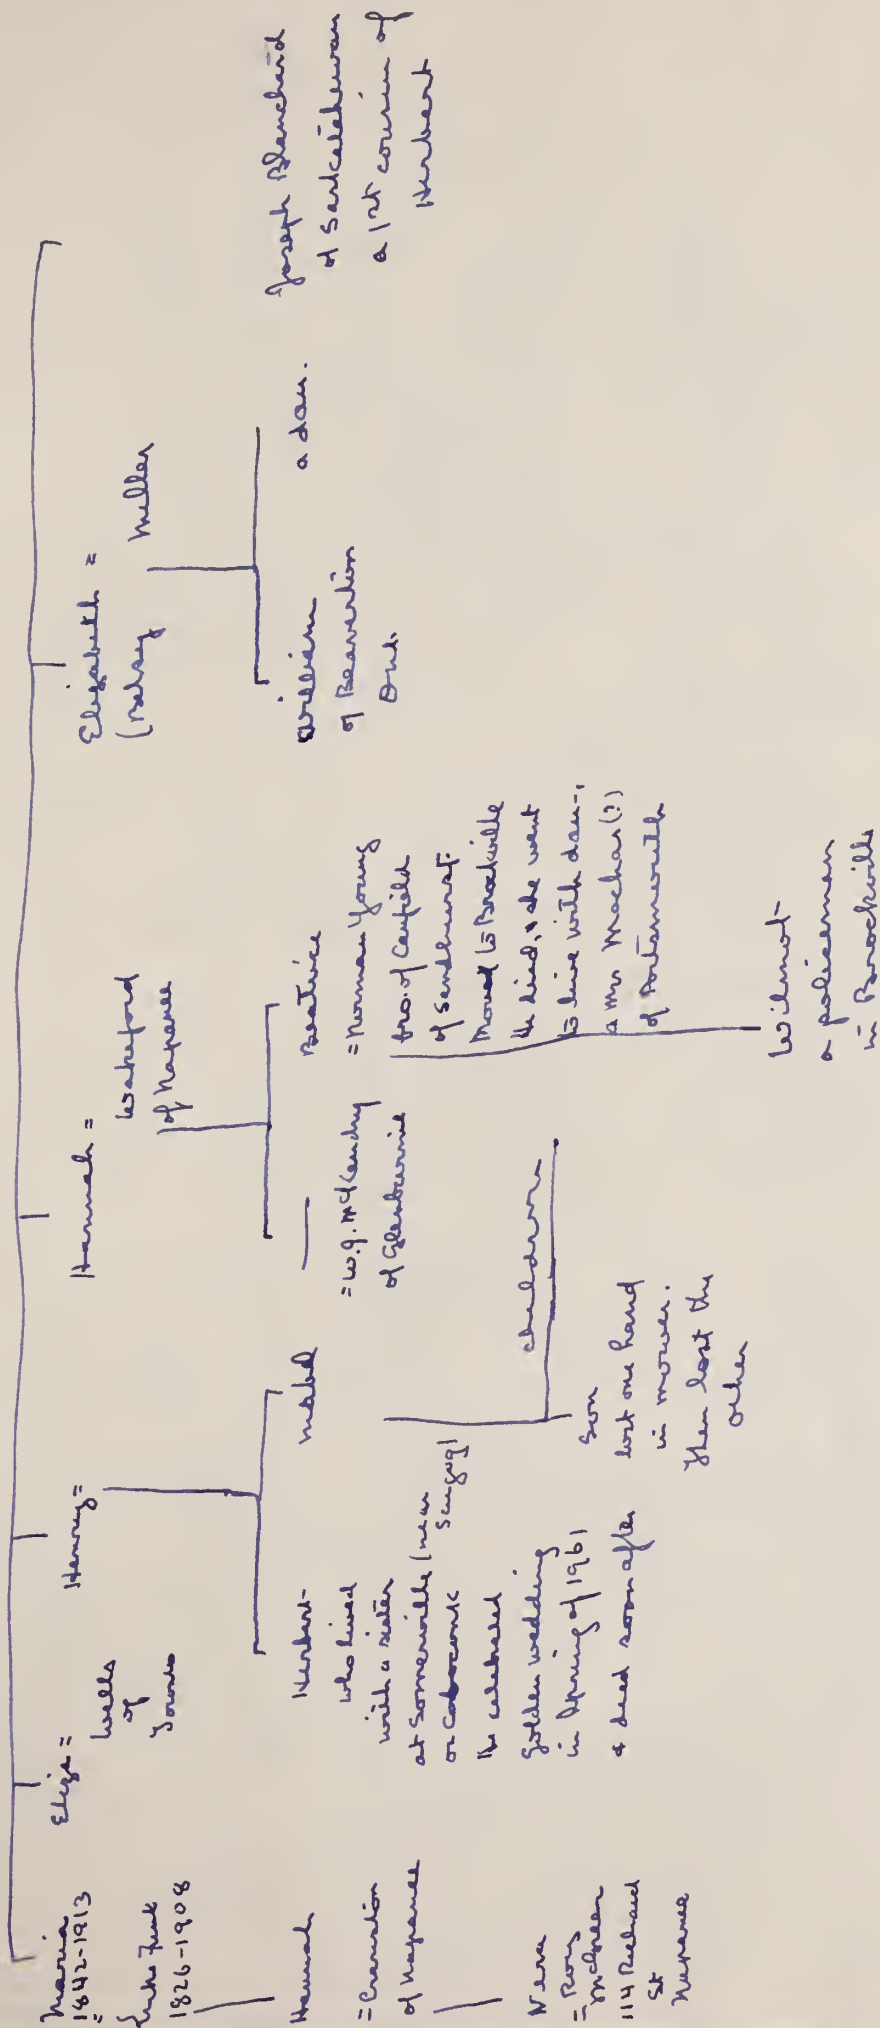 Maria
1842-1913
=
Luke
1826-1908
Hannah
= Cranston
of Napanee
Vera
= Roy
McGreer
114 Richard
St
Napanee
Eliza =
Wells
of
Henry =
Herbert-
who lived
with a sister
at Somerville (near
Scugog)
or Coboconk
He celebrated
Golden wedding
in Spring of 1961
& died soon after
Mabel
children
Son
lost one hand
in mower.
Then lost the
other
Hannah =
Wakeford
of Napanee
= W.G. McKendry
of Glenburnie
Beatrice
= Norman Young
bro. of Canfield
of Sandhurst.
Moved to Brockville
He died, & she went
to live with dau-,
a Mrs Machar(?)
of Portsmouth
Wilmot
a policeman
in Brockville
Elizabeth =
(Betsey
Miller
William
of Beaverton
Ont.
a dau.
Joseph Blanchard
of Saskatchewan
a 1st cousin of
Herbert